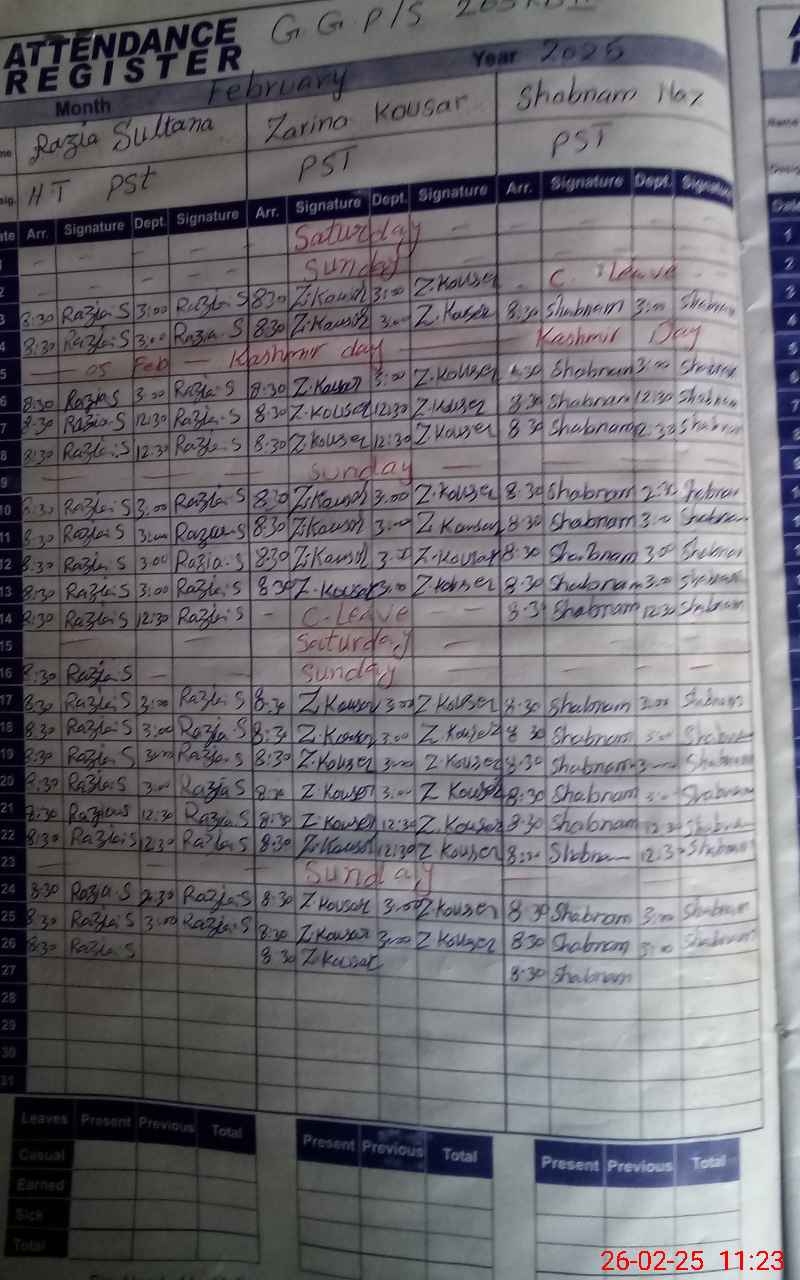 G G P/S
ATTENDANCE REGISTER
Month February Year 2025
Razia Sultana Zarina Kousar Shabnam Naz
HT PSt PST PST
Arr. Signature Dept. Signature Arr. Signature Dept. Signature Arr. Signature Dept. Signature
1 Saturday
2 Sunday
3 8:30 Razia.S 3:00 Razia.S 8:30 Z.Kousar 3:00 Z.Kouser C. Leave
4 8:30 Razia.S 3:00 Razia.S 8:30 Z.Kousar 3:00 Z.Kouser 8:30 Shabnam 3:00 Shabnam
5 05 Feb Kashmir day Kashmir Day
6 8:30 Razia.S 3:00 Razia.S 8:30 Z.Kousar 3:00 Z.Kouser 8:30 Shabnam 3:00 Shabnam
7 8:30 Razia.S 12:30 Razia.S 8:30 Z.Kouser 12:30 Z.Kouser 8:30 Shabnam 12:30 Shabnam
8 8:30 Razia.S 12:30 Razia.S 8:30 Z.Kouser 12:30 Z.Kouser 8:30 Shabnam 12:30 Shabnam
9 Sunday
10 8:30 Razia.S 3:00 Razia.S 8:30 Z.Kousar 3:00 Z.Kouser 8:30 Shabnam
11 8:30 Razia.S 3:00 Razia.S 8:30 Z.Kousar 3:00 Z.Kousar 8:30 Shabnam 3:00 Shabnam
12 8:30 Razia.S 3:00 Razia.S 8:30 Z.Kousar 3:00 Z.Kousar 8:30 Shabnam 3:00 Shabnam
13 8:30 Razia.S 3:00 Razia.S 8:30 Z.Kouser 3:00 Z.Kouser 8:30 Shabnam 3:00 Shabnam
14 8:30 Razia.S 12:30 Razia.S C.Leave 8:30 Shabnam 12:30 Shabnam
15 Saturday
16 8:30 Razia.S Sunday
17 8:30 Razia.S 3:00 Razia.S 8:30 Z.Kouser 3:00 Z Kouser 8:30 Shabnam 3:00 Shabnam
18 8:30 Razia.S 3:00 Razia.S 8:30 Z.Kouser 3:00 Z.Kouser 8:30 Shabnam 3:00 Shabnam
19 8:30 Razia.S 3:00 Razia.S 8:30 Z.Kouser 3:00 Z.Kouser 8:30 Shabnam 3:00 Shabnam
20 8:30 Razia.S 3:00 Razia S 8:30 Z Kouser 3:00 Z Kouser 8:30 Shabnam 3:00 Shabnam
21 8:30 Razia.S 12:30 Razia.S 8:30 Z.Kouser 12:30 Z.Kouser 8:30 Shabnam 12:30 Shabnam
22 8:30 Razia.S 12:30 Razia.S 8:30 Z.Kousar 12:30 Z Kouser 8:30 Shabnam 12:30 Shabnam
23 Sunday
24 8:30 Razia.S Razia.S 8:30 Z.Kousar 3:00 Z Kouser 8:30 Shabnam 3:00 Shabnam
25 8:30 Razia.S 3:00 Razia.S 8:30 Z.Kousar 3:00 Z Kouser 8:30 Shabnam 3:00 Shabnam
26 8:30 Razia.S 8:30 Z.Kousar 8:30 Shabnam
27
28
29
30
31
Leaves Present Previous Total Present Previous Total Present Previous Total
Casual
Earned
Sick
Total
26-02-25 11:23